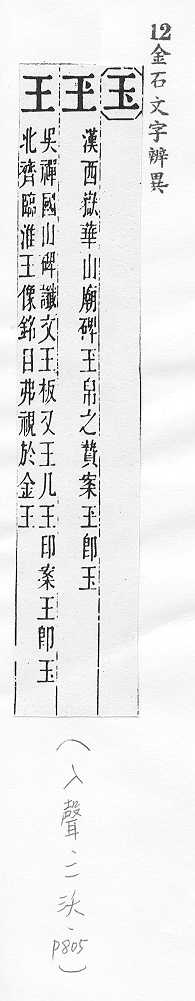 12金石文字辨異
玉
玊 漢西嶽華山廟碑玊帛之贄案玊即玉
王 吳禪國山碑讖文王板又王几王印案王即玉
北齊臨淮王像銘曰弗視於金王
（入聲·二沃·p805）